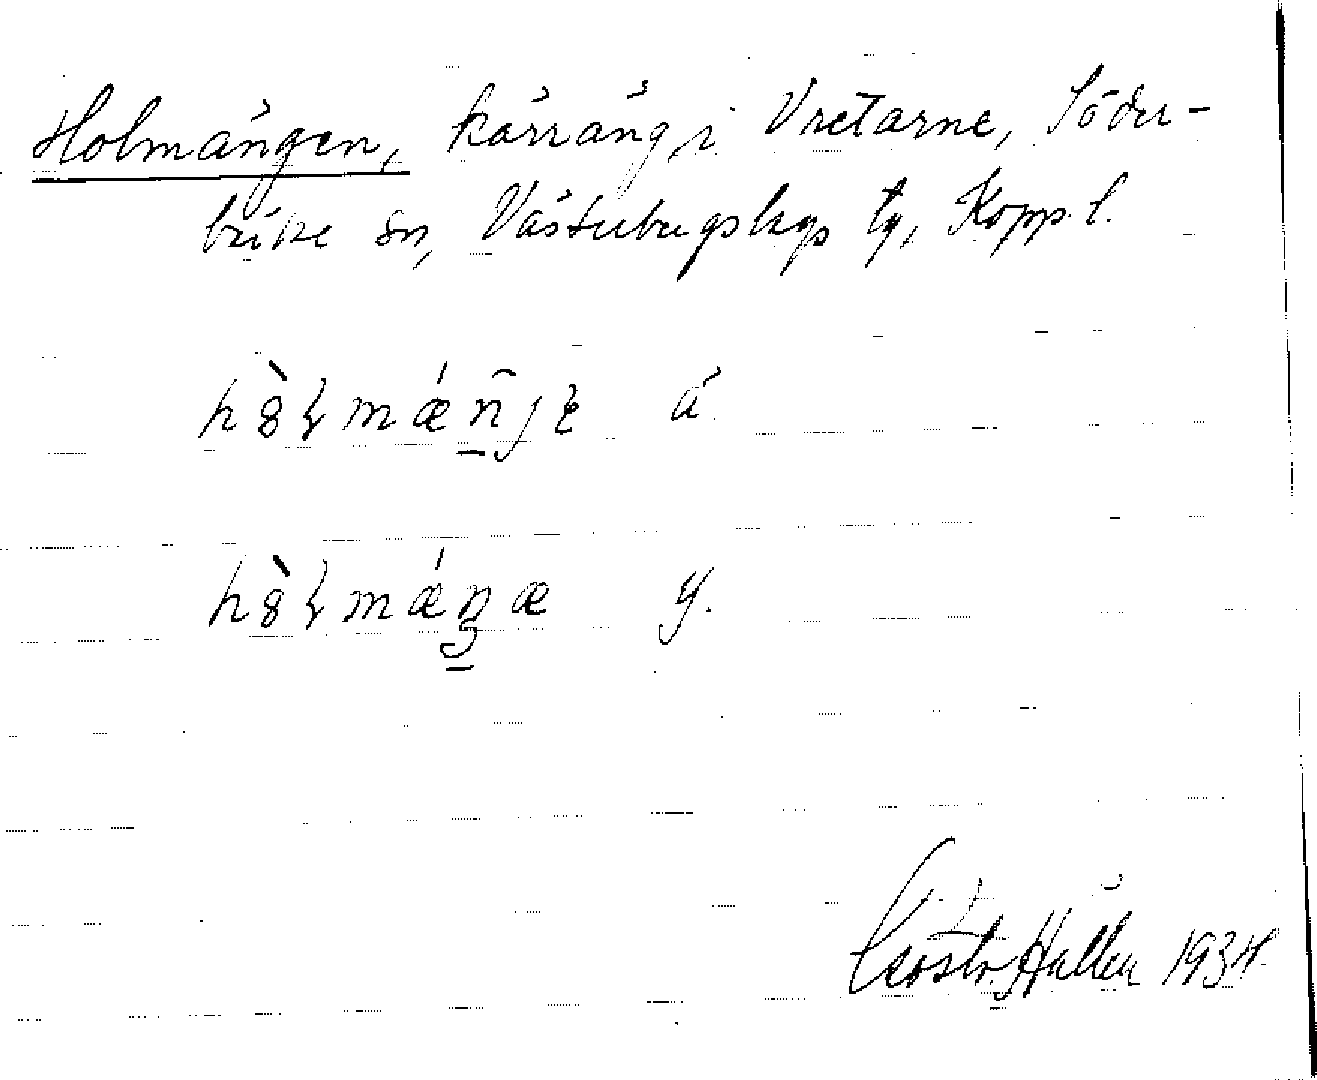 Holmängen, kärräng i Vretarne, Söder-
bärke sn, Västerbergslags tg, Kopp. l.
hòlmǽn̄jɛ ä.
hòlmǽŋæ y.
Hallén 1934